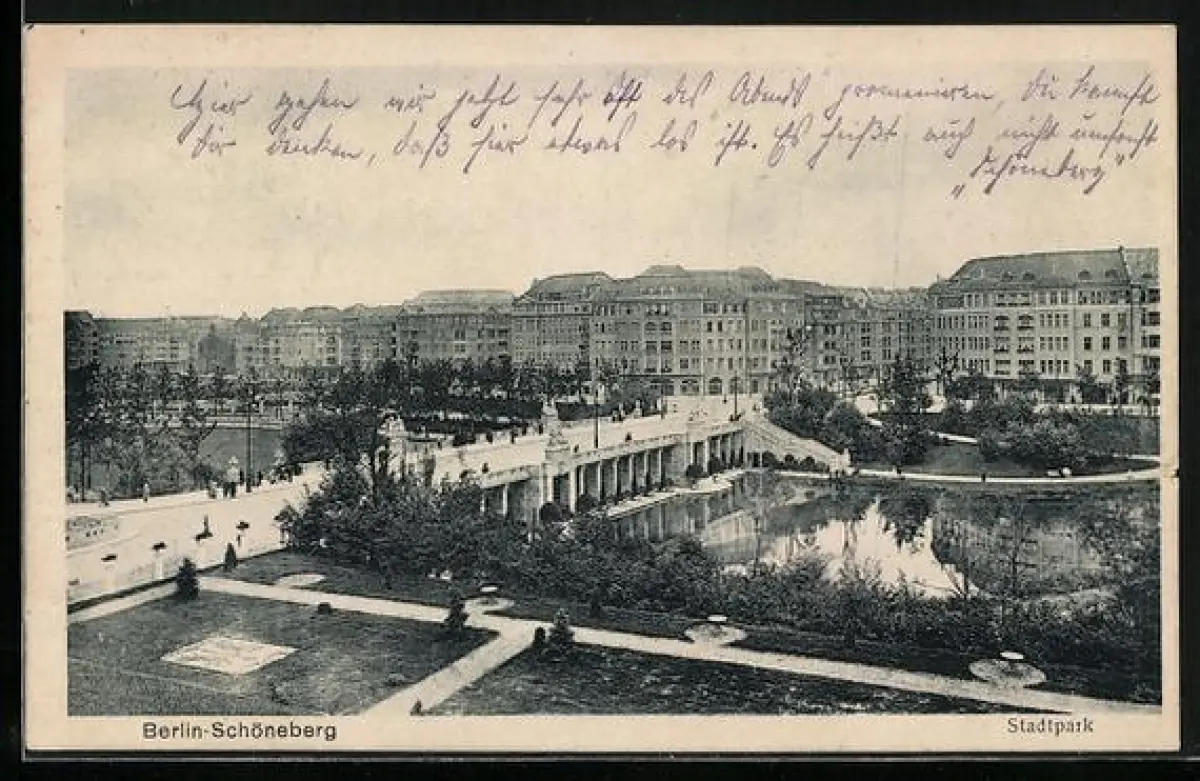 Hier gehen wir jetzt sehr oft des Abends promenieren, Du kannst
Dir denken, daß hier etwas los ist. Es heißt auch nicht umsonst
„Schöneberg“
Berlin-Schöneberg
Stadtpark